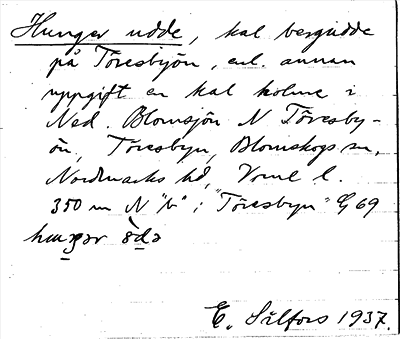 Hunger udde, kal bergudde
på Töresbyön, enl. annan
uppgift en kal holme i
Ned. Blomsjön N Töresby-
ön, Töresbyn, Blomskogs sn,
Nordmarks hd, Vrml l.
350 m N "b" i "Töresbyn" G 69
huŋər ùdə
E. Silfors 1937.